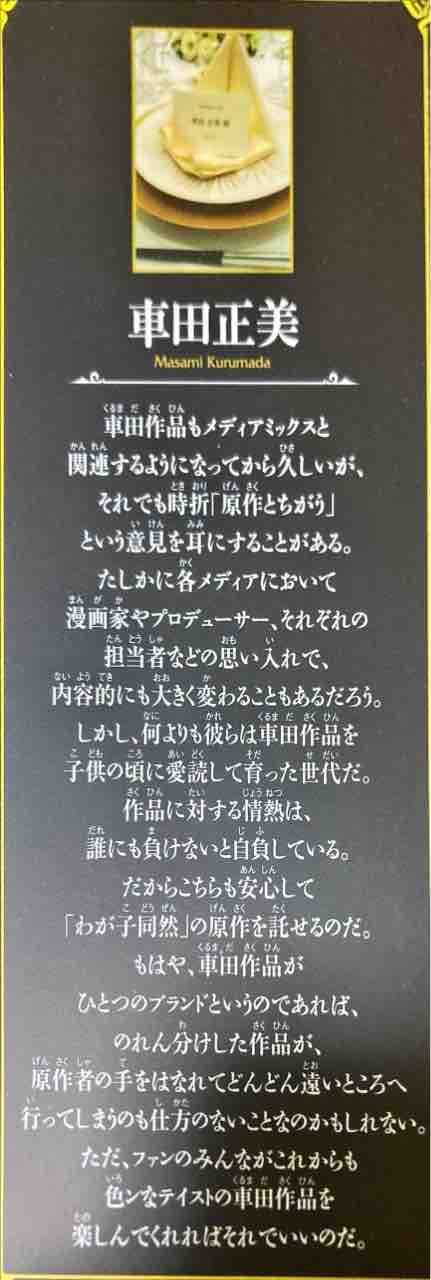 車田正美
Masami Kurumada
車田作品もメディアミックスと
関連するようになってから久しいが、
それでも時折「原作とちがう」
という意見を耳にすることがある。
たしかに各メディアにおいて
漫画家やプロデューサー、それぞれの
担当者などの思い入れで、
内容的にも大きく変わることもあるだろう。
しかし、何よりも彼らは車田作品を
子供の頃に愛読して育った世代だ。
作品に対する情熱は、
誰にも負けないと自負している。
だからこちらも安心して
「わが子同然」の原作を託せるのだ。
もはや、車田作品が
ひとつのブランドというのであれば、
のれん分けした作品が、
原作者の手をはなれてどんどん遠いところへ
行ってしまうのも仕方のないことなのかもしれない。
ただ、ファンのみんながこれからも
色ンなテイストの車田作品を
楽しんでくれればそれでいいのだ。